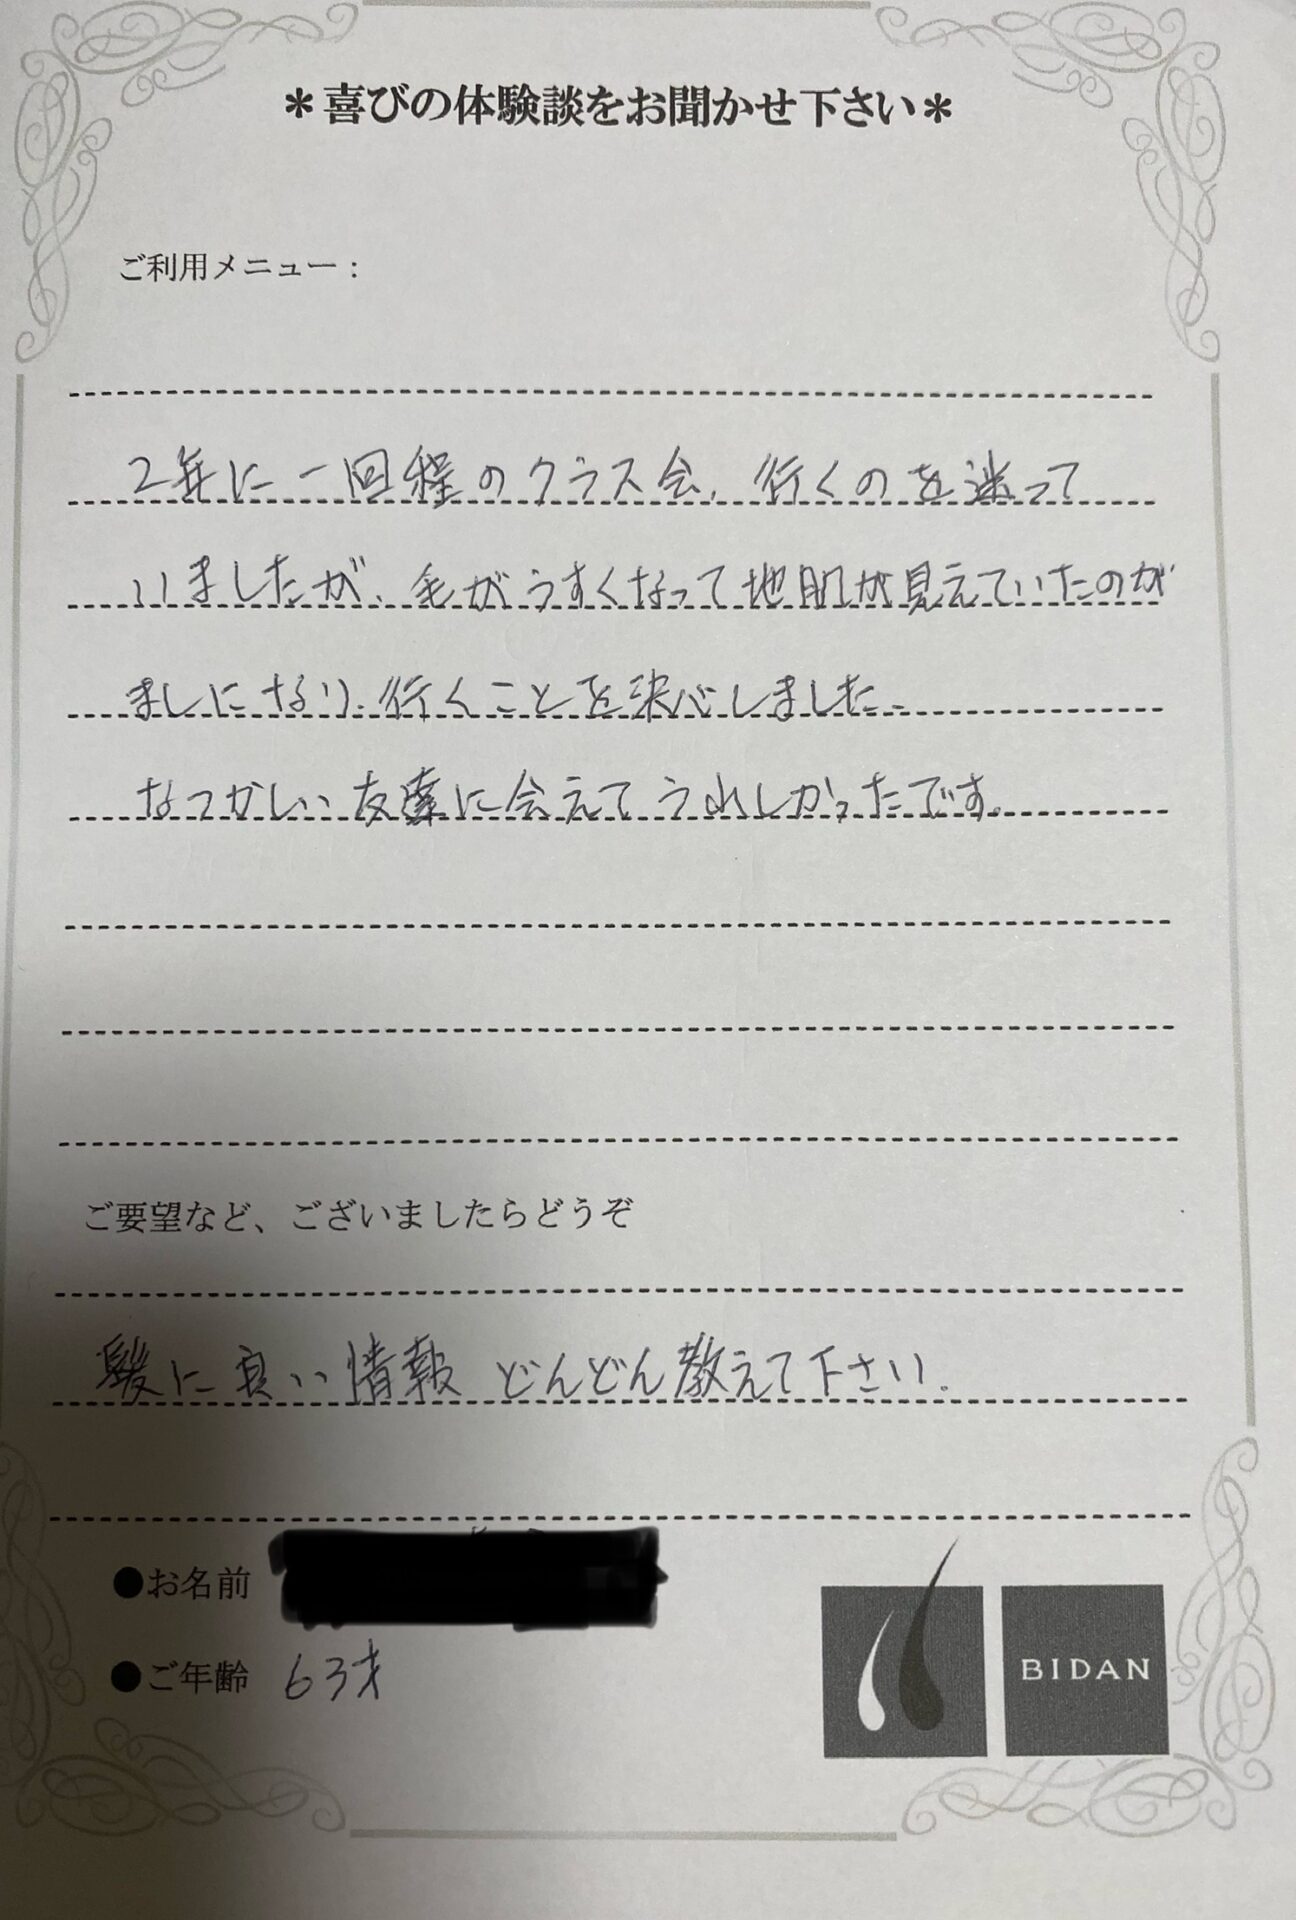 ＊喜びの体験談をお聞かせ下さい＊
ご利用メニュー：
2年に一回程のクラス会、行くのを迷って
いましたが、毛がうすくなって地肌が見えていたのが
ましになり、行くことを決心しました。
なつかしい友達に会えてうれしかったです。
ご要望など、ございましたらどうぞ
髪に良い情報 どんどん教えて下さい。
●お名前
●ご年齢 63才
BIDAN